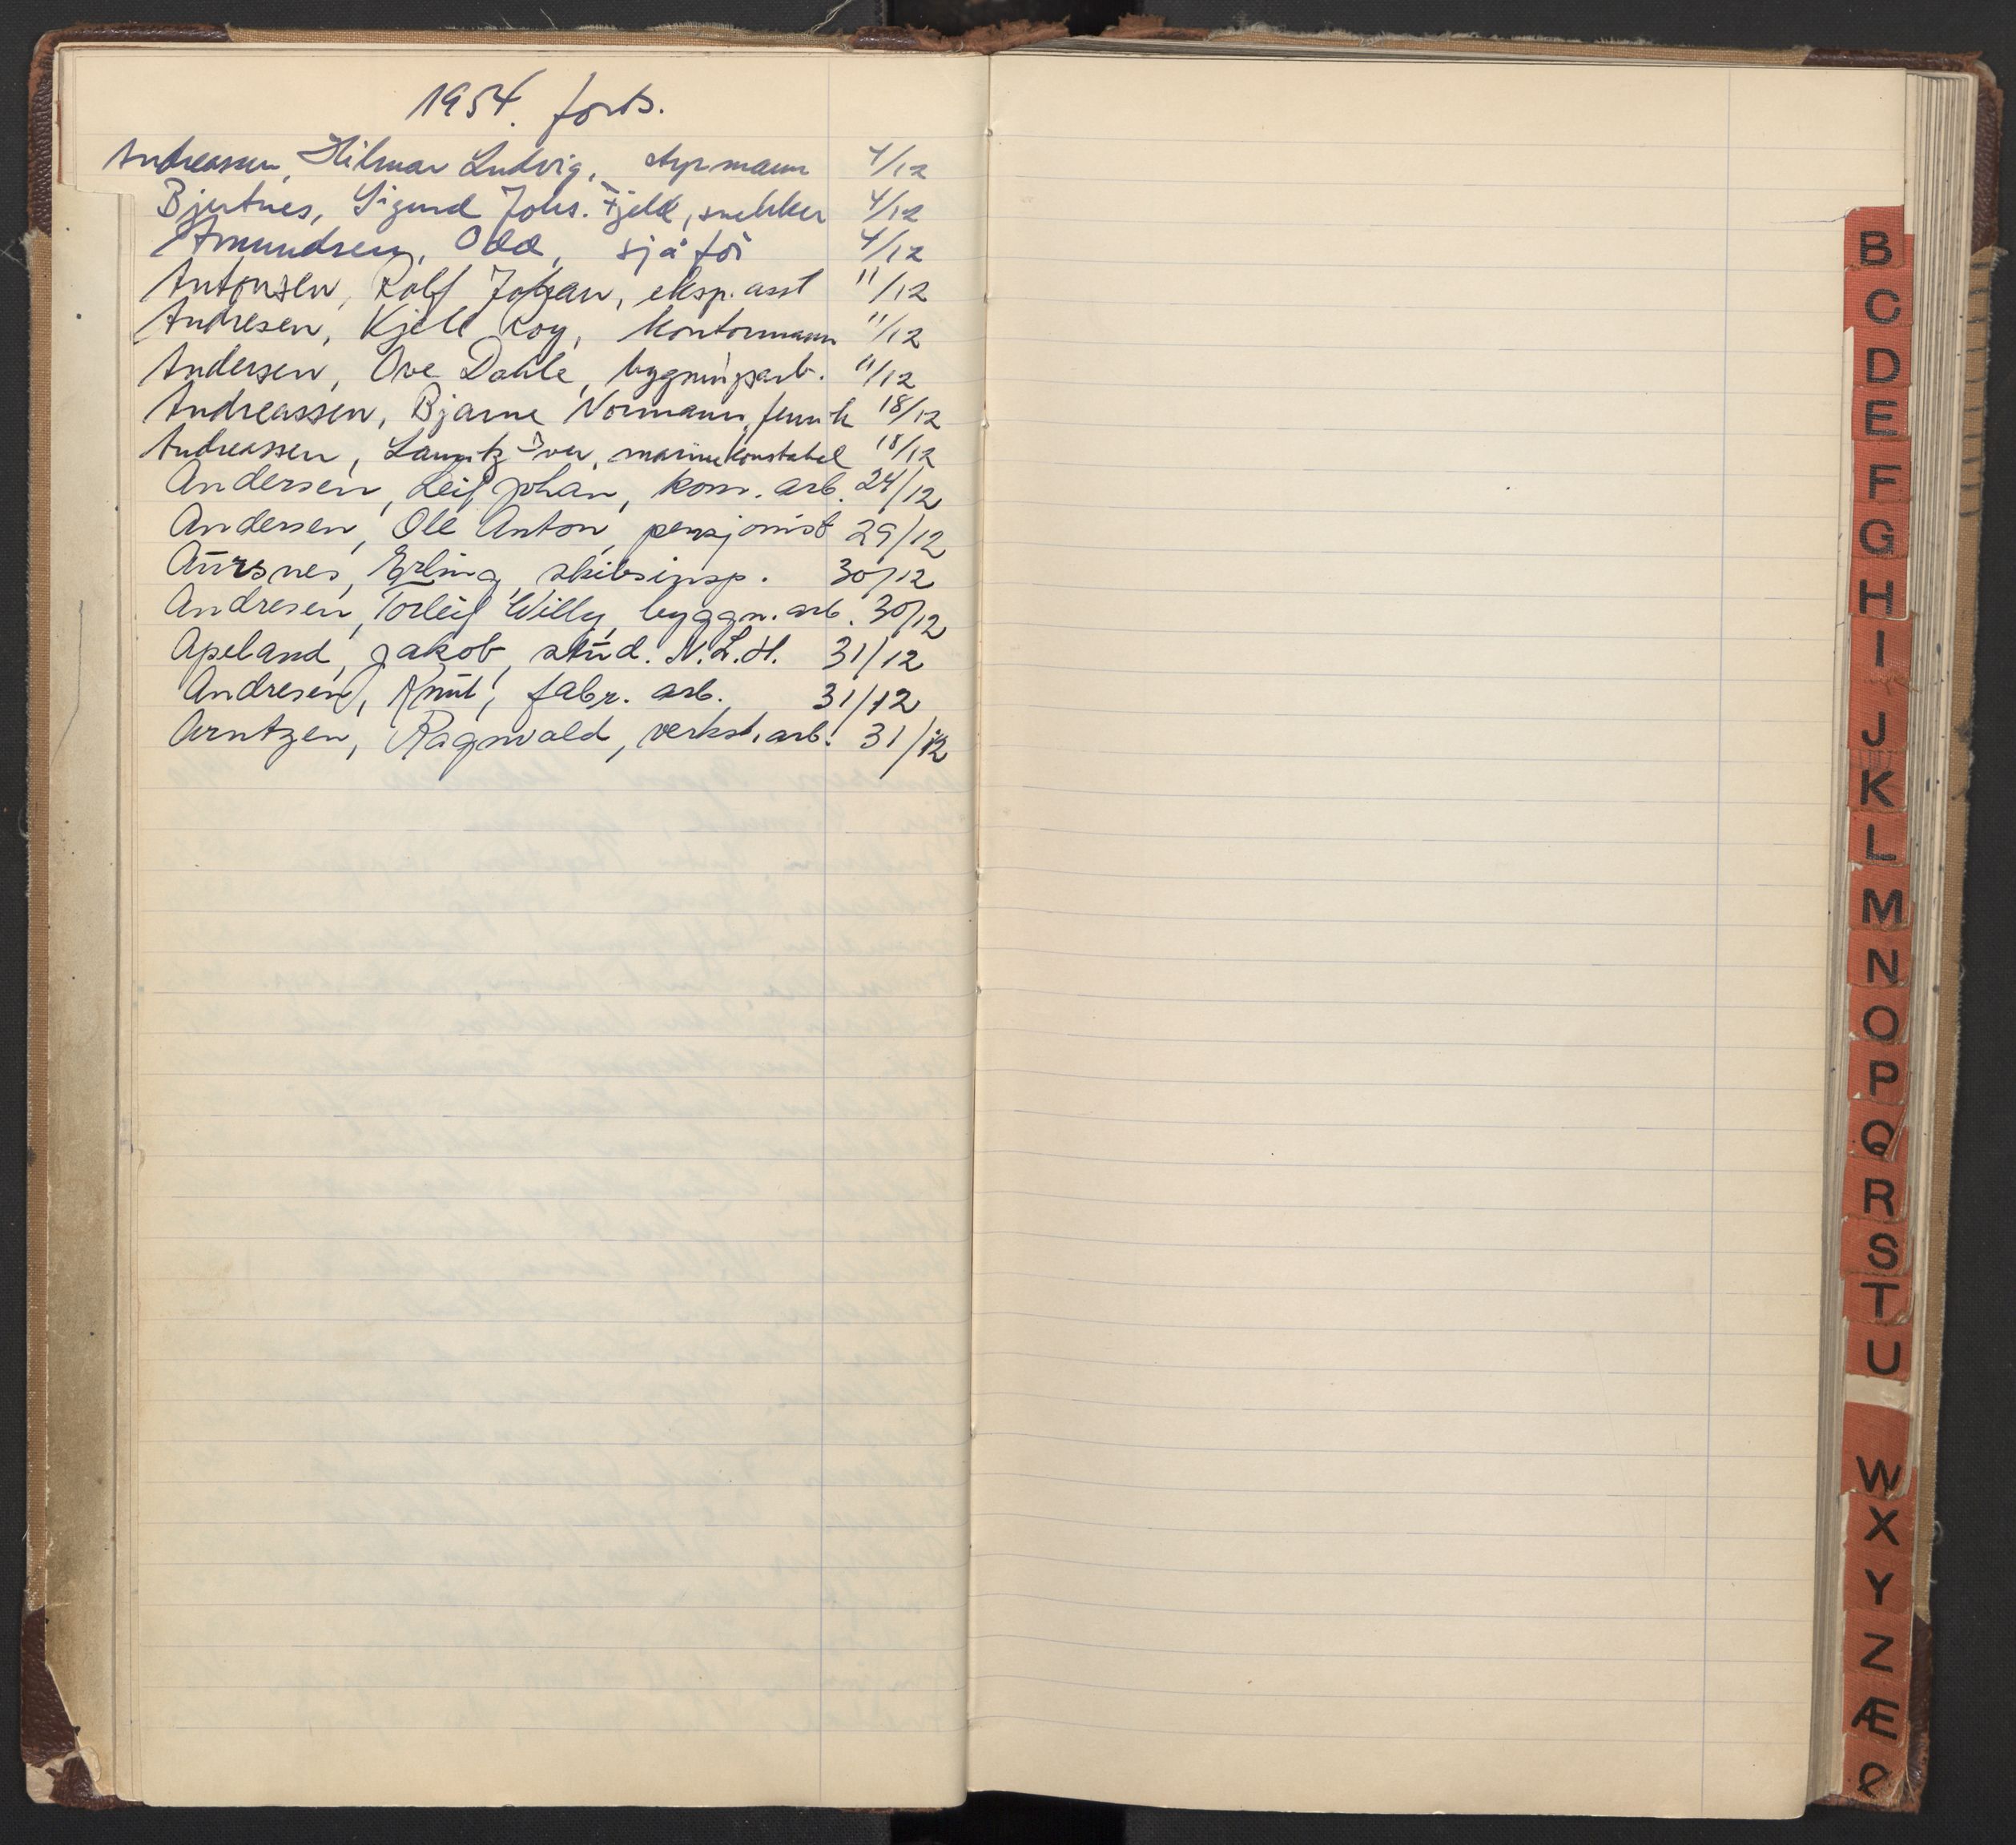 1954. forts.
Andreassen, Hilmar Ludvig, styrmann 4/12
Bjertnes, Sigurd Johs. Fjeld, snekker 4/12
Amundsen, Odd, sjåfør 4/12
Antonsen, Rolf Johan, eksp. asst 11/12
Andresen, Kjell Roy, kontormann 11/12
Andersen, Ove Dahle, bygningsarb. 11/12
Andreassen, Bjarne Normann, fenrik 18/12
Andreassen, Lauritz Iver, marinekonstabel 18/12
Andersen, Leif Johan, kom. arb. 24/12
Andersen, Ole Anton, pensjonist 29/12
Aursnes, Erling, skibsinsp. 30/12
Andresen, Torleif Willy, byggn. arb. 30/12
Apeland, Jakob, stud. N.L.H. 31/12
Andresen, Knut, fabr. arb. 31/12
Arntzen, Ragnvald, verkst. arb. 31/12
B
C
D
E
F
G
H
I
J
K
L
M
N
O
P
Q
R
S
T
U
W
X
Y
Z
Æ